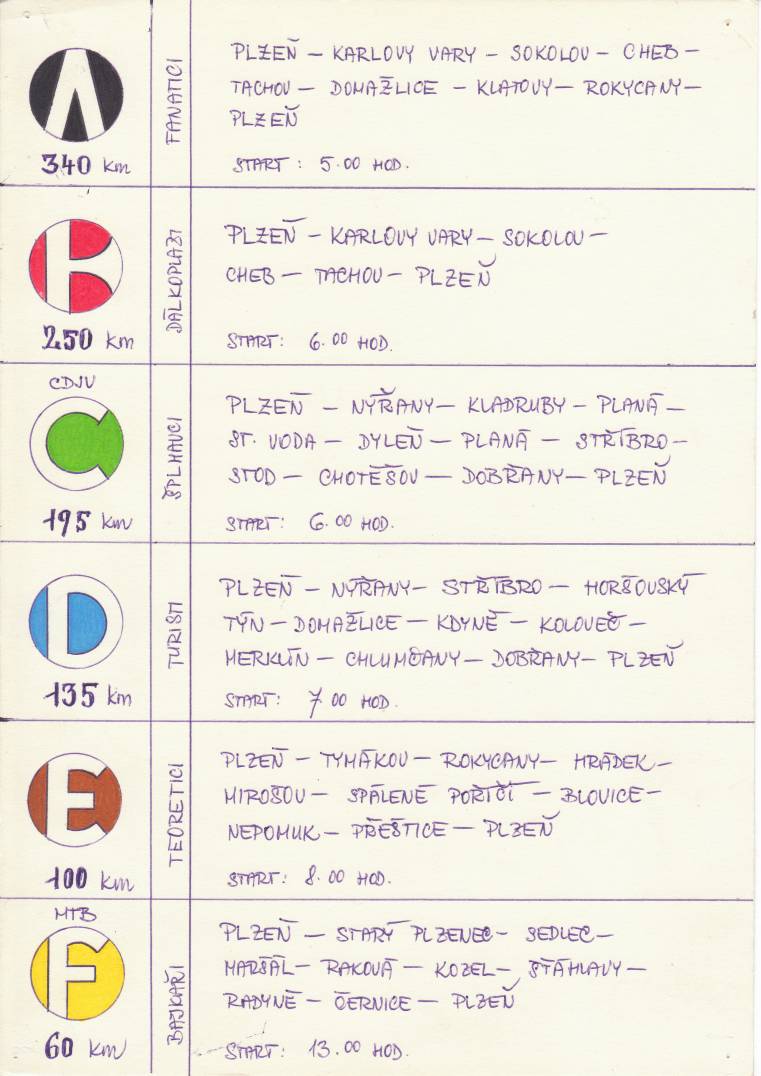 A
340 km
FANATICI
PLZEŇ – KARLOVY VARY – SOKOLOV – CHEB –
TACHOV – DOMAŽLICE – KLATOVY – ROKYCANY –
PLZEŇ
START : 5.00 HOD.
B
250 km
DÁLKOPLAZI
PLZEŇ – KARLOVY VARY – SOKOLOV –
CHEB – TACHOV – PLZEŇ
START: 6.00 HOD.
CDJV
C
195 km
ŠPLHAVCI
PLZEŇ – NÝŘANY – KLADRUBY – PLANÁ –
ST. VODA – DYLEŇ – PLANÁ – STŘÍBRO –
STOD – CHOTĚŠOV – DOBŘANY – PLZEŇ
START: 6.00 HOD.
D
135 km
TURISTI
PLZEŇ – NÝŘANY – STŘÍBRO – HORŠOVSKÝ
TÝN – DOMAŽLICE – KDYNĚ – KOLOVEČ –
MERKLÍN – CHLUMČANY – DOBŘANY – PLZEŇ
START: 7 00 HOD.
E
100 km
TEORETICI
PLZEŇ – TYMÁKOV – ROKYCANY – HRÁDEK –
MIROŠOV – SPÁLENÉ POŘÍČÍ – BLOVICE –
NEPOMUK – PŘEŠTICE – PLZEŇ
START: 8.00 HOD.
MTB
F
60 km
BAJKAŘI
PLZEŇ – STARÝ PLZENEC – SEDLEC –
MARŠÁL – RAKOVÁ – KOZEL – ŠŤÁHLAVY –
RADYNĚ – ČERNICE – PLZEŇ
START: 13.00 HOD.